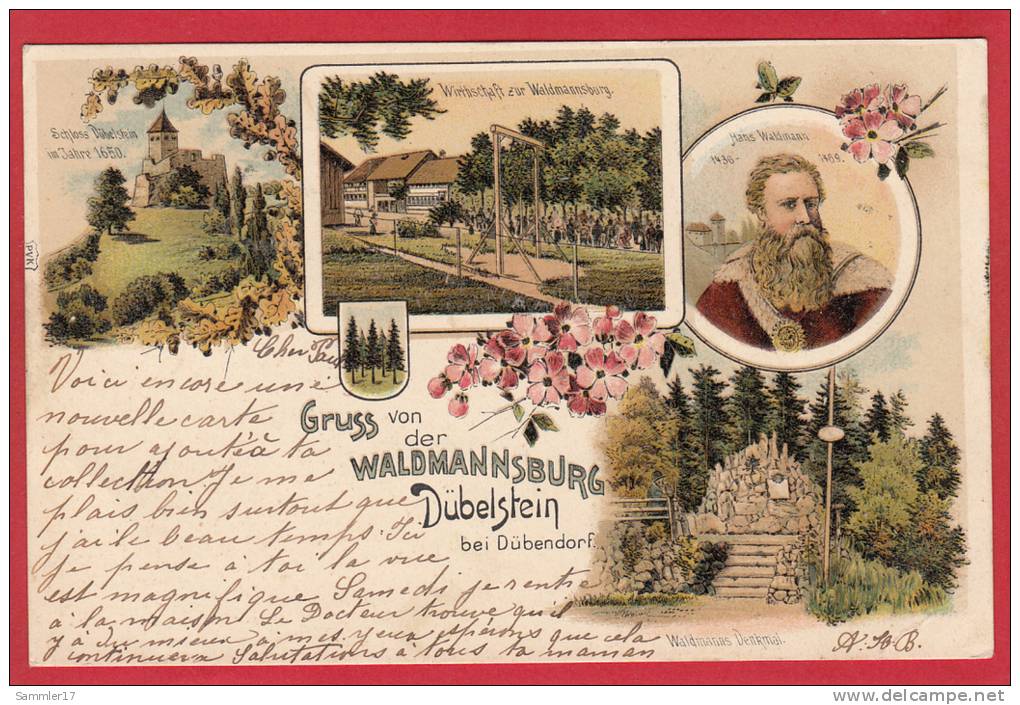 Schloss Dübelstein
im Jahre 1650.
Wirthschaft zur Waldmannsburg.
Hans Waldmann
1436- 1489.
PVK
Gruss von
der
WALDMANNSBURG
Dübelstein
bei Dübendorf.
Cher Paul
Voici encore une
nouvelle carte
pour ajouté à ta
collection Je me
plais bien surtout que
j'ai le beau temps. Ici
je pense à toi la vue
est magnifique Samedi je rentre
à la maison. Le Docteur trouve qu'il
y a du mieux à mes yeux espérons que cela
continuera Salutations à tous ta maman
Waldmanns Denkmal.
Sammler17
delcampe.net